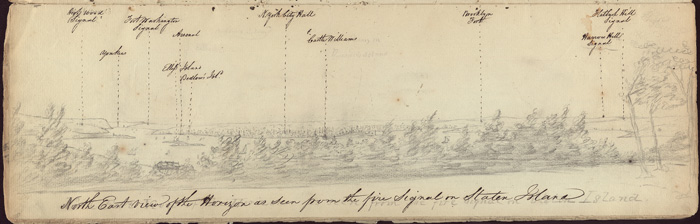 High Wood
Signal
Fort Washington
Signal
Arsenal
Ellis Island
Bedlow Isl.d
N York City Hall
Castle Williams
Brooklyn
Fort
Flatbush Hill
Signal
Signal
North East view of the Horizon as seen from the fire Signal on Staten Island
Island